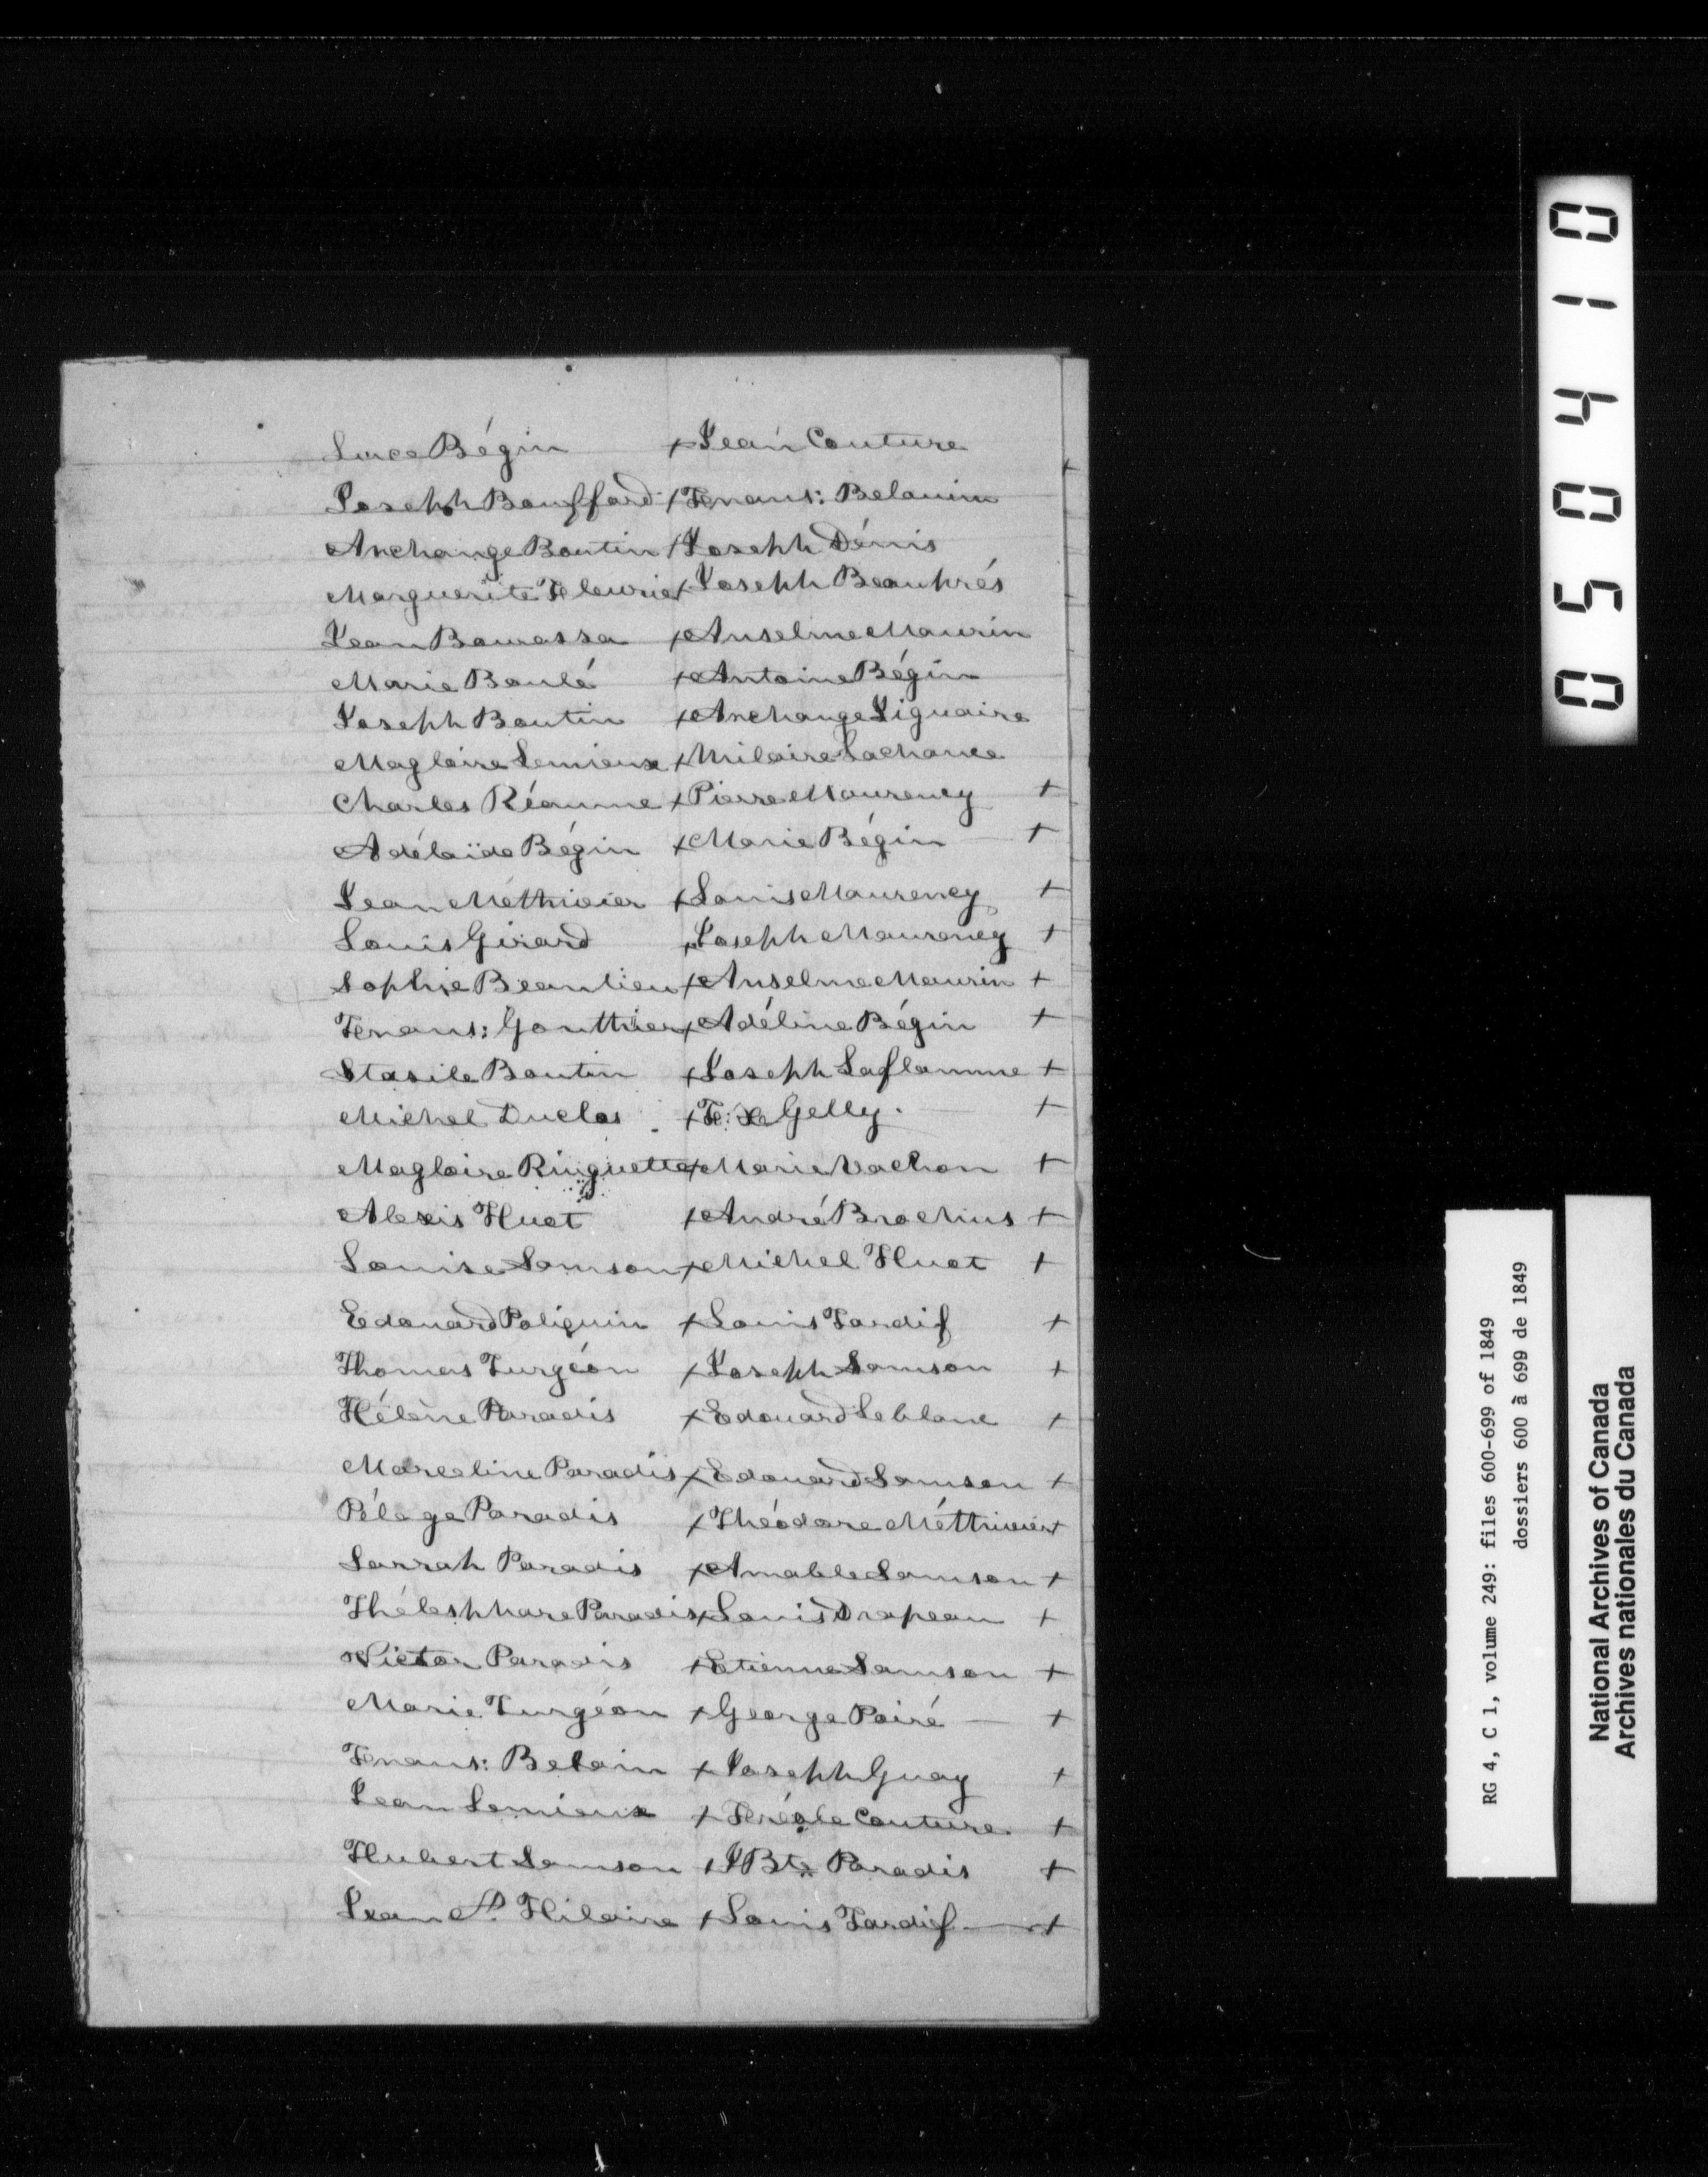 Luce Bégin + Jean Couture +
Joseph Bouffard + Frans: Belouin
Archange Boutin + Joseph Dénis
Marguerite Fleurie + Joseph Beauprés
Jean Bourassa + Anselme Maurin
Marie Boulé + Antoine Bégin
Joseph Boutin + Archange Siguaire
Magloire Lemieux + Hilaire Lachance
Charles Réaume + Pierre Maurency +
Adélaïde Bégin + Marie Bégin +
Jean Méthivier + Louis Maurency +
Louis Girard + Joseph Maurency +
Sophie Beaulieu + Anselme Maurin +
Frans: Gouthier + Adéline Bégin +
Stasile Boutin + Joseph Laflamme +
Michel Duclos + F: X Gelly. +
Magloire Ringuette + Marie Vachon +
Alexis Huot + André Brochus +
Louise Samson + Michel Huot +
Edouard Poliquin + Louis Tardif +
Thomas Turgéon + Joseph Samson +
Hélène Paradis + Edouard Leblanc +
Marceline Paradis + Edouard Samson +
Pélage Paradis + Théodore Méthivier +
Sarrah Paradis + Amable Samson +
Thélesphore Paradis + Louis Drapeau +
Victor Paradis + Etienne Samson +
Marie Turgéon + George Poiré +
Frans: Beloin + Joseph Guay +
Jean Lemieux + Couture +
Hubert Samson + JBte Paradis +
Jean St. Hilaire + Louis Tardif +
050410
RG 4, C 1, volume 249: files 600-699 of 1849
dossiers 600 à 699 de 1849
National Archives of Canada
Archives nationales du Canada